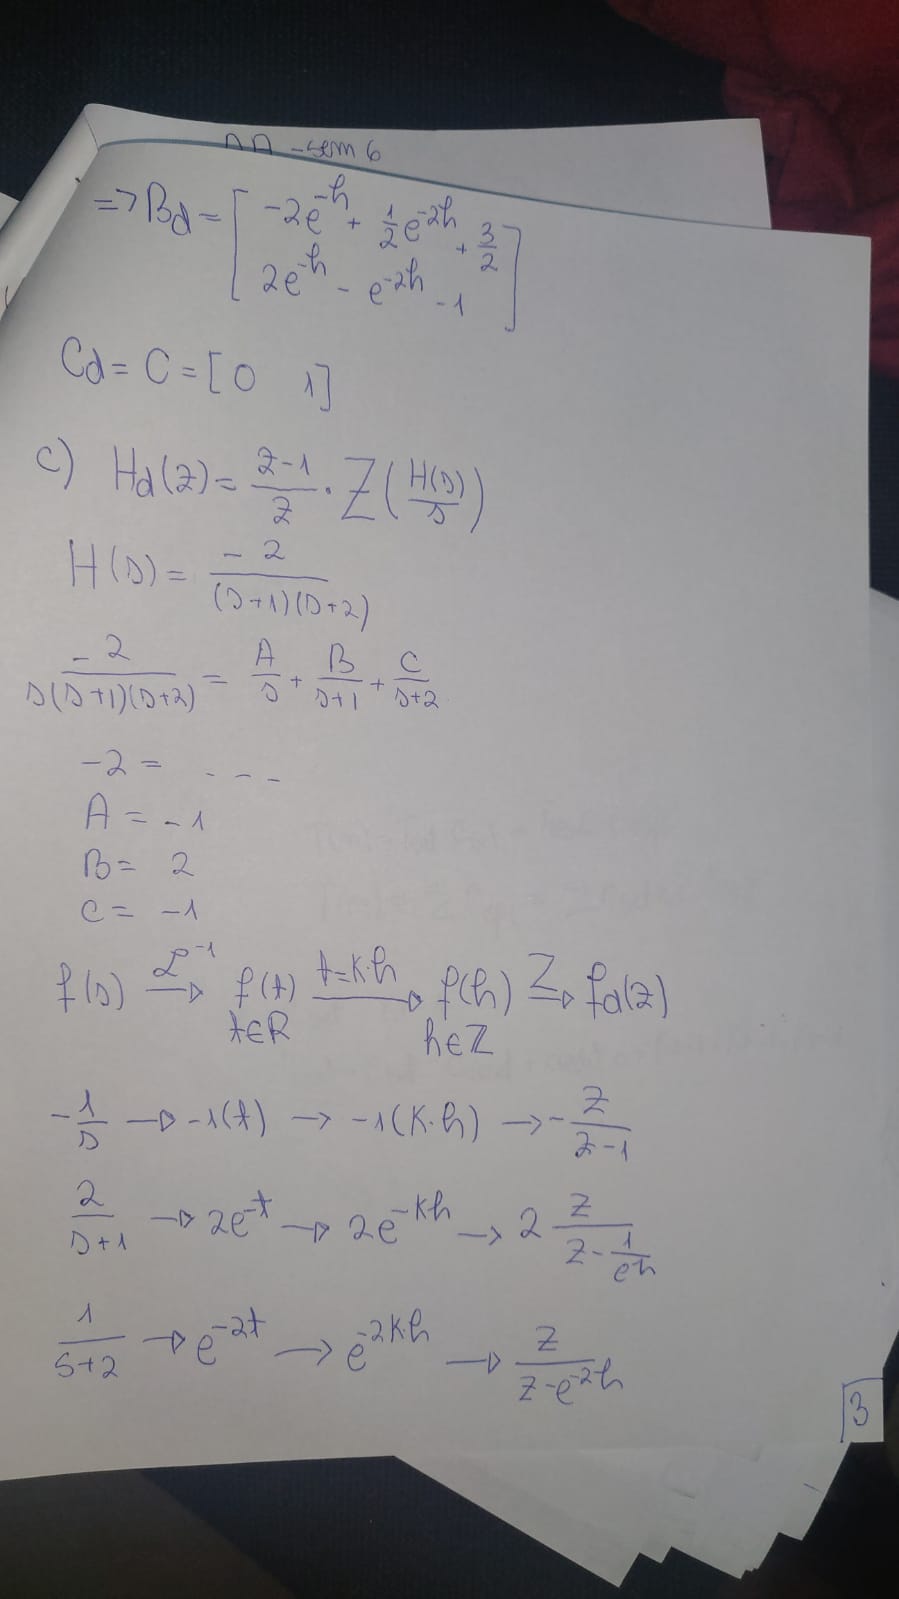 -sem 6
=> Bd = [ -2e^-h + 1/2 e^-2h + 3/2
2e^-h - e^-2h - 1 ]
Cd = C = [0 1]
c) Hd(z) = z-1/z · Z(H(s)/s)
H(s) = -2/(s+1)(s+2)
-2/s(s+1)(s+2) = A/s + B/s+1 + C/s+2
-2 = - - -
A = -1
B = 2
C = -1
f(s) L^-1→ f(t) t=k·h→ f(h) Z→ fd(z)
t∈R h∈Z
-1/s → -1(t) → -1(k·h) → -z/z-1
2/s+1 → 2e^-t → 2e^-kh → 2 z/z-1/e^h
1/s+2 → e^-2t → e^-2k·h → z/z-e^-2h
3